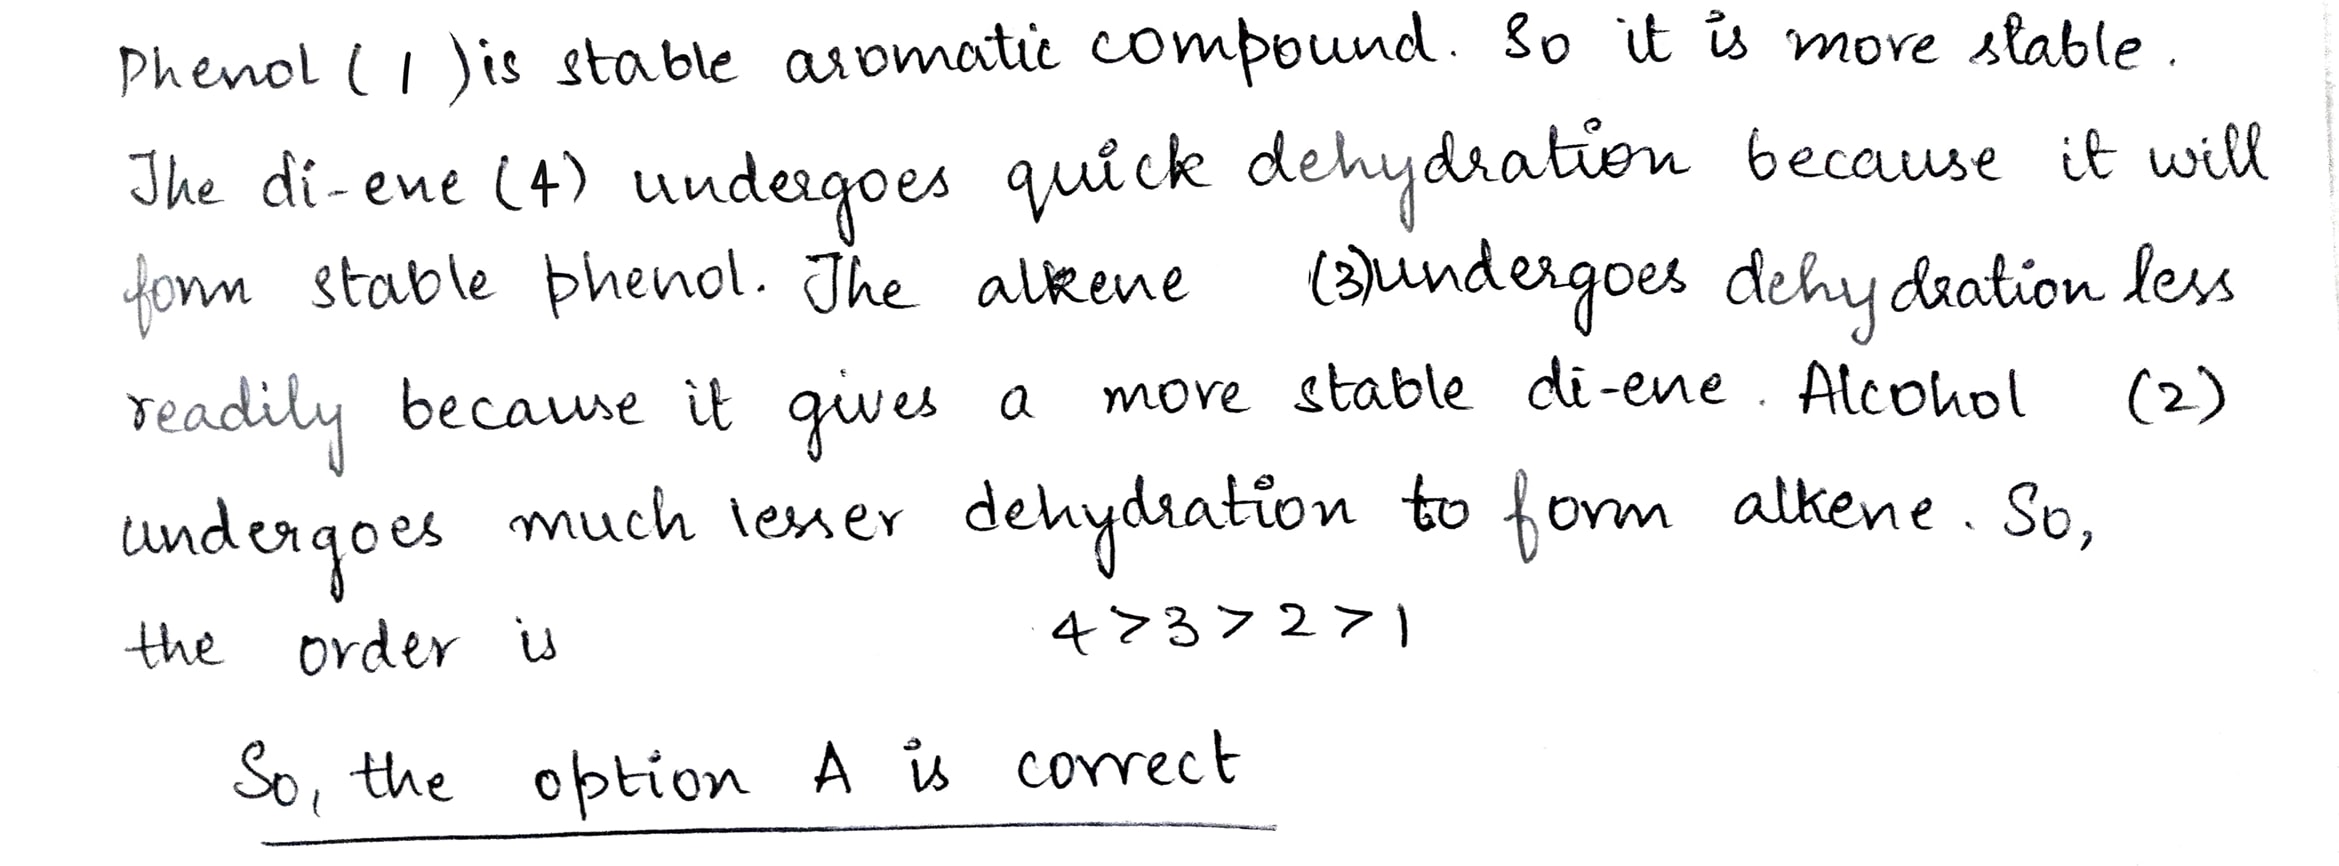 Phenol (1) is stable aromatic compound. So it is more stable.
The di-ene (4) undergoes quick dehydration because it will
form stable phenol. The alkene (3) undergoes dehydration less
readily because it gives a more stable di-ene. Alcohol (2)
undergoes much lesser dehydration to form alkene. So,
the order is 4 > 3 > 2 > 1
So, the option A is correct